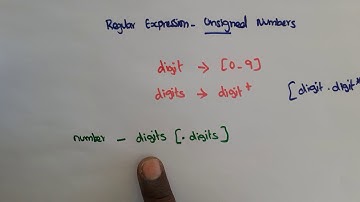 Regular Expression - Unsigned Numbers
digit → [0-9]
digits → digit+ [digit.digit*
number - digits [. digits]